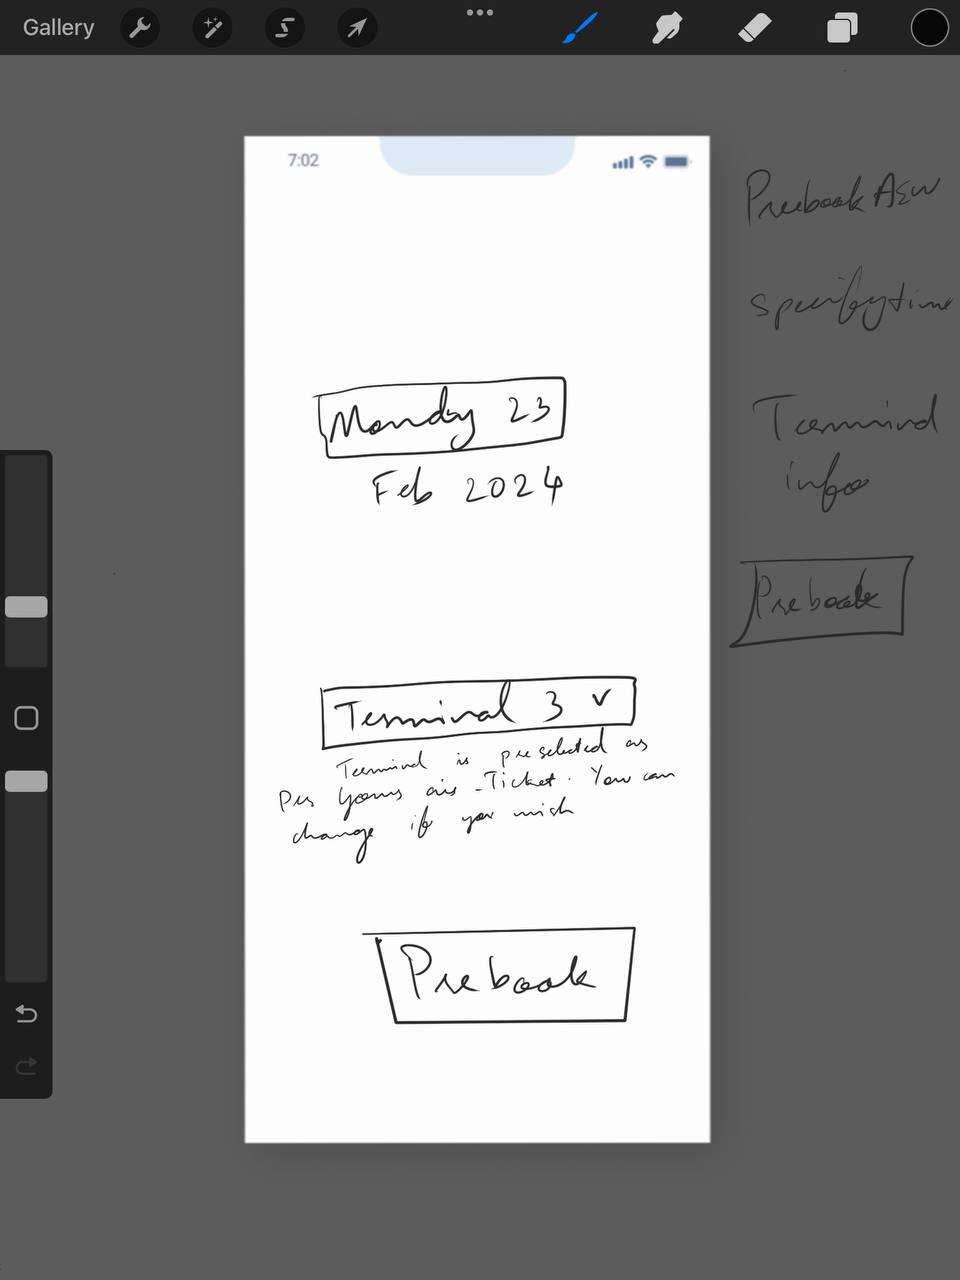 Gallery
7:02
Monday 23
Feb 2024
Terminal 3
Terminal is preselected as
Per Yours air-Ticket. You can
change if you wish
Prebook
Prebook
specify time
Terminal
info
Prebook